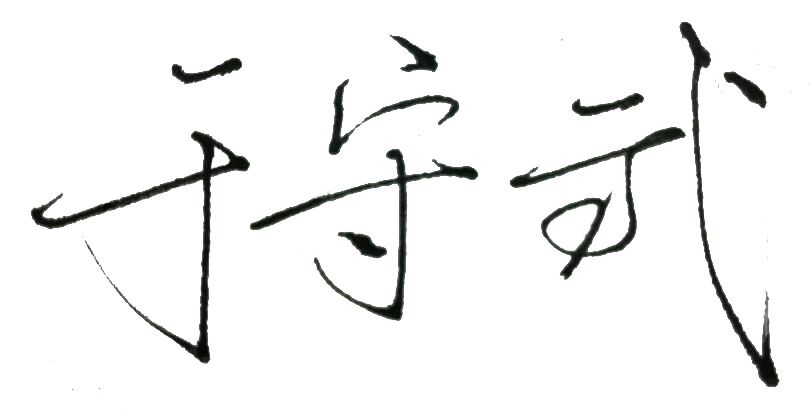 于守武